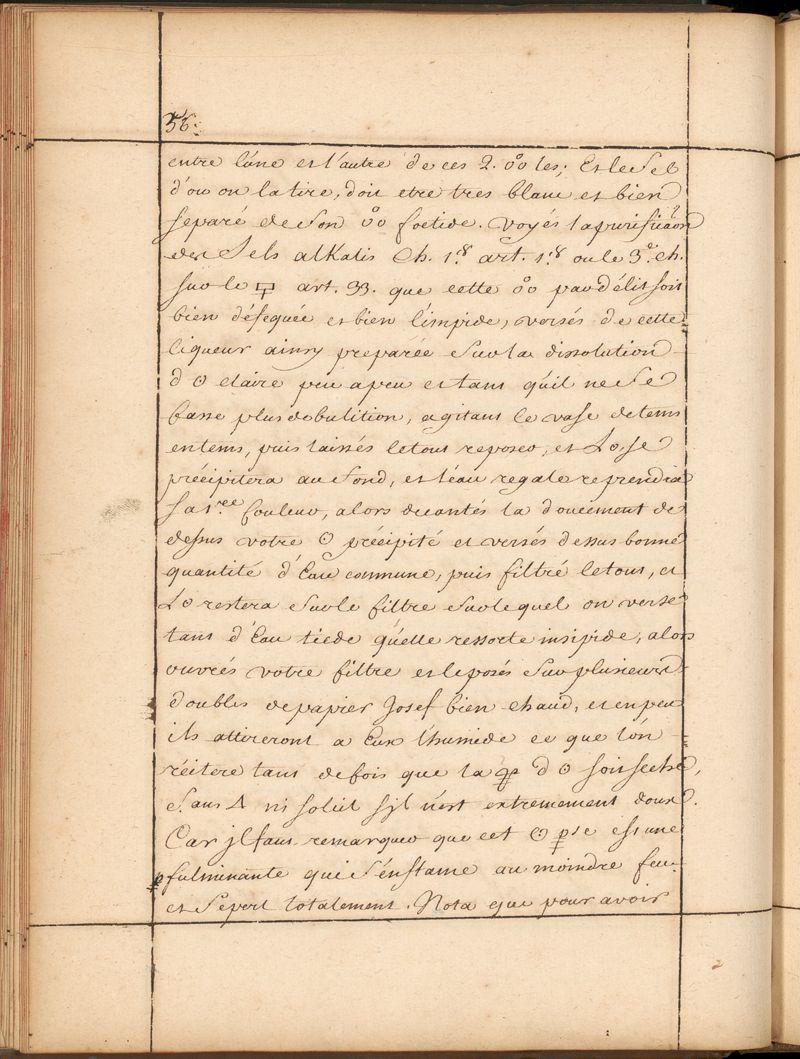 56.
entre l'une et l'autre de ces 2. o°o les; Et le Sel
d'ou on la tire, doit etre tres blanc et bien
separé de son o°o foetide. Voyés la purifica͠on
des Sels alKalis Ch. 1.er art. 1.er ou le 3.e ch.
sur le art. 33. que cette o°o par délit soit
bien défequée et bien l'impide, versés de cette
liqueur ainsy preparée Sur la dissolution
d'☉ claire peu a peu et tant qu'il ne Se
fasse plus debulition, agitant le vase de tems
en tems, puis laissés le tout reposer, et L☉ se
précipitera au fond, et l'éau regale reprendra
sa 1.ree Couleur, alors decantés la doucement de
dessus votre ☉ précipité et versés dessus bonne
quantité d'Eau commune, puis filtré le tout, et
L☉ restera Sur le filtre Sur lequel on verse
tant d'Eau tiede qu'elle ressorte insipide, alors
ouvrés votre filtre et le posés Sur plusieurs
doubles de papier Josef bien chaud, et en peu
ils attireront a Eux l'humide ce que l'on
réitere tant de fois que la d'☉ soit seche,
Sans Δ ni soleil s'jl n'est extremement doux.
Car jl faut remarquer que cet ☉ p se est une
fulminante qui S'enflame au moindre feu
et Se pert totalement. Nota que pour avoir